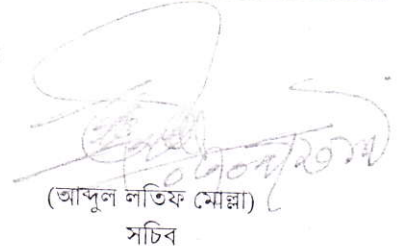 (আব্দুল লতিফ মোল্লা)
সচিব